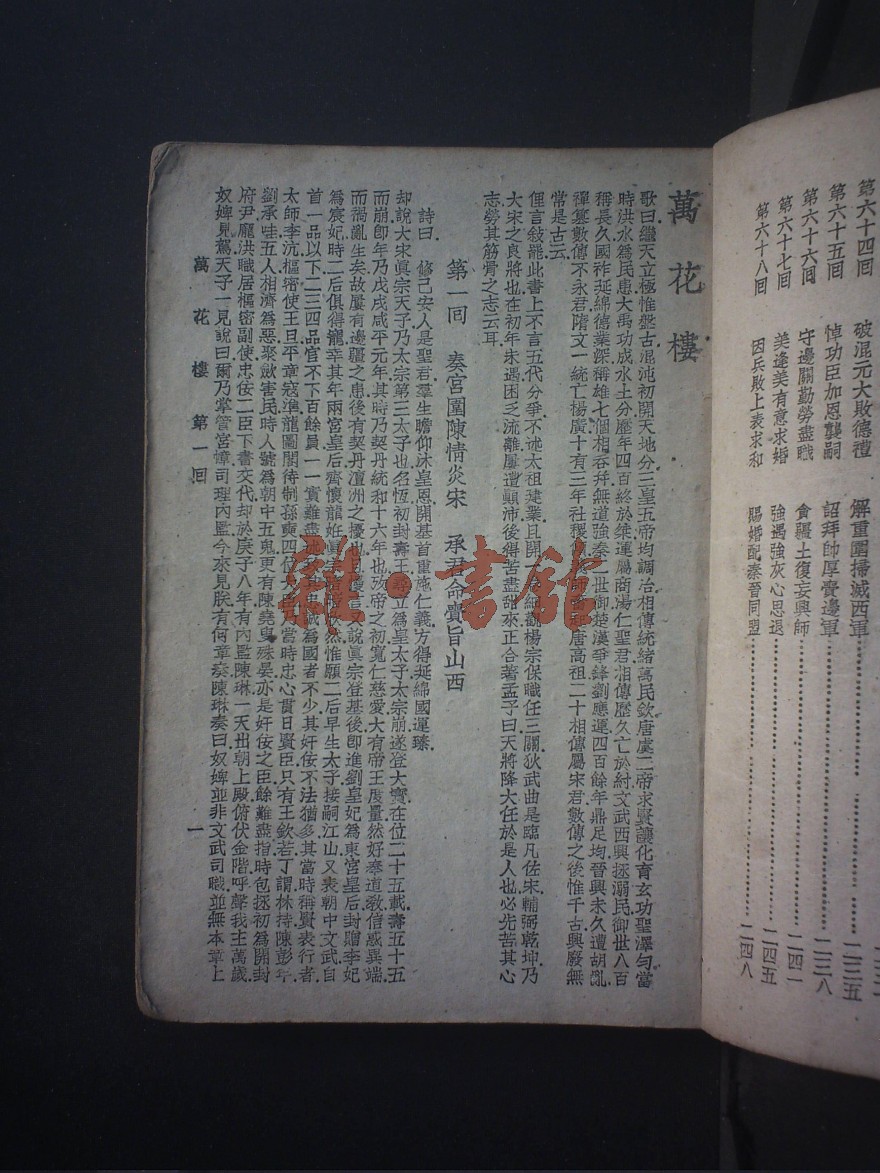 第六十四回 破混元大敗德禮 解重圍掃滅西軍 二三五
第六十五回 悼功臣加恩襲嗣 詔拜帥厚賚邊軍 二三八
第六十六回 守邊關勤勞盡職 貪疆土復妄興師 二四一
第六十七回 美逢美有意求婚 強遇強灰心思退 二四五
第六十八回 因兵敗上表求和 賜婚配秦晉同盟 二四八
萬花樓
歌曰繼天立極惟盤古混沌初開天地分三皇五帝均調治相傳統緒萬民欽唐虞二帝求賢讓化育玄功聖澤勻當
時洪水爲民患大禹功成水土分歷年四百終於桀運屬商湯仁聖君相傳歷久亡於紂文武西興拯溺民御世八百
稱長久國祚延綿德業深稱雄七個相吞并無道強秦二世御楚漢爭鋒劉應運四百餘年鼎足均晉興未久遭胡亂
禪篡數傳不永君隋文一統亡楊廣十有三年社稷唐高祖二十相傳屬宋君數傳之後惟千古興廢無
常是古云
俚言敍罷此書上不言五代分爭不述太祖建業且開一觀楊宗保職任三關狄武曲星臨凡佐宋輔弼乾坤乃
大宋之良將也在初年未遇困乏流離屢遭顚沛後得苦盡甜來正合著孟子曰天將降大任於是人也必先苦其心
志勞其筋骨之志云耳
第一回 奏宮闈陳情炎宋 承君命賫旨山西
詩曰 修己安人是聖君羣生瞻仰沐皇恩開基首重施仁義方得延綿國運臻
却說大宋眞宗天子乃太宗第三太子也名恆初封壽王尋立爲皇太子太宗崩遂登大寶在位二十五載壽五十五
而崩卽年乃戊戌咸平元年其時乃契丹統和十六年也歿帝之初寬仁慈愛大有帝王度量然好奉道敎信惑異端
而禍亂生矣故屢有邊疆之患後有契丹澶洲之擾也且又說眞宗登基後卽進劉皇妃爲東宮皇后封贈李妃
爲宸妃時二后俱得寵幸其年兩宮皇后齊懷龍妊眞宗然惟願二后早生太子接嗣江山又表朝中文武自
首一品以下二三四品官不下百餘員一一實難盡述誠爲國者不少其奸佞不法猶多其當時稱賢表行者
太師李沆樞密使王旦平章寇準龍圖閣待制孫奭四位大當時忠心貫日賢臣只有王欽若丁謂林持陳彭年
劉承哇五人相濟爲惡聚歛害民時人號爲朝中五鬼更有陳堯叟殊晏亦是奸佞之臣餘難盡指時包拯初爲開封
府尹龐洪職居樞密副使忠佞二臣下書交代却於庚子八年有內監陳琳一天出朝上殿俯伏金階呼聲我主萬歲
奴婢見駕天子一見說曰爾乃掌管宮幃司理內監今來見朕有何章奏陳琳奏曰奴婢並非文武司職並無本章上
萬花樓 第一回 一
雜·書館